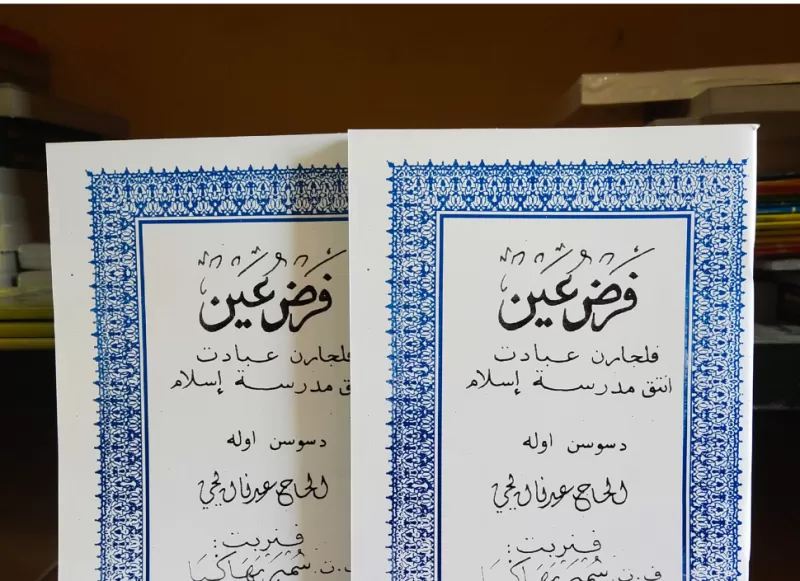 فَرَضُ عَين
فلجارن عبادت
مدرسة إسلام
دسوسن اوله
الحاج عدنان يحي
فنربيت:
ف.ن. سُمبَر بَهَاكيَا
فَرَضُ عَين
فلجارن عبادت
انتق مدرسة إسلام
دسوسن اوله
الحاج عدنان يحي
فنربيت:
ف.ن. سُمبَر بَهَاكيَا